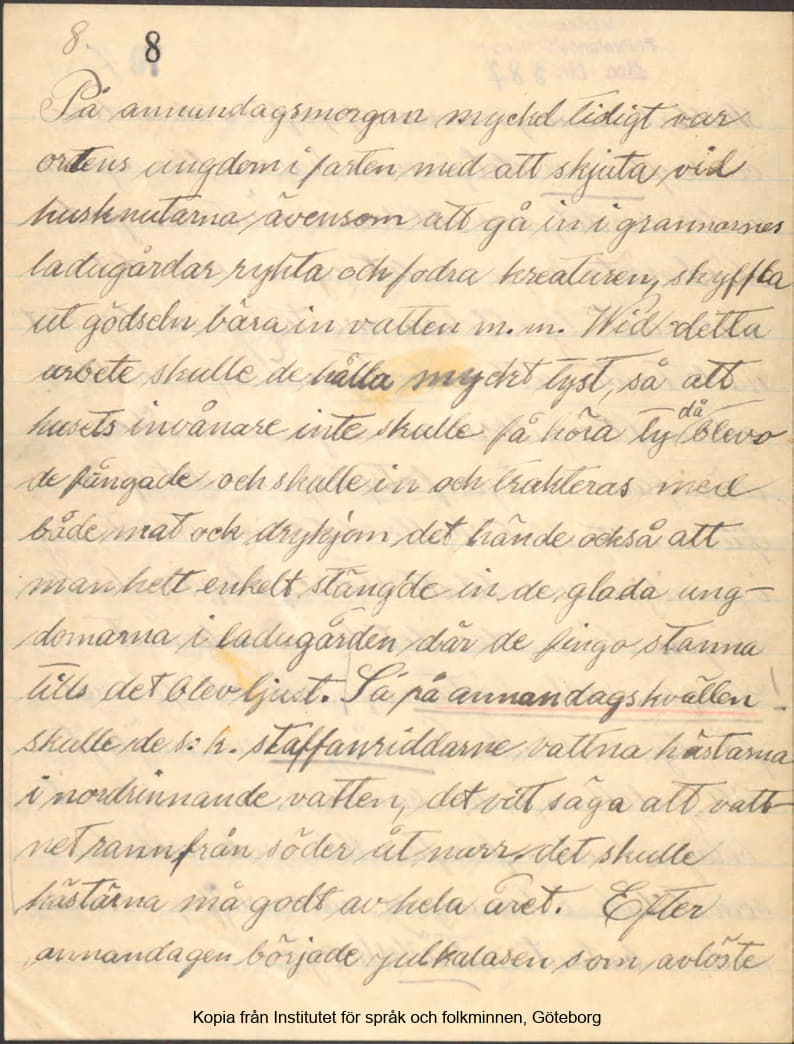 8 8
På annandagsmorgan myckd tidigt var
ortens ungdom i farten med att skjuta vid
husknutarna ävensom att gå in i grannarnes
ladugårdar rykta och fodra kreaturen, skyffla
ut gödseln bära in vatten m. m. Wid detta
arbete skulle de hålla myckt tyst, så att
husets invånare inte skulle få höra ty då blevo
de fångade och skulle in och trakteras med
både mat ock dryck, om det hände också att
man helt enkelt stängde in de glada ung-
domarna i ladugården där de fingo stanna
tills det blev ljust. Så på annandagskvällen !
skulle de s: k. staffanriddarne vattna hästarna
i nordrinnande vatten, det vill säga att vatt-
net rann från söder åt narr, det skulle
hästarna må godt av hela året. Efter
annandagen började julkalasen som avlöste
Kopia från Institutet för språk och folkminnen, Göteborg